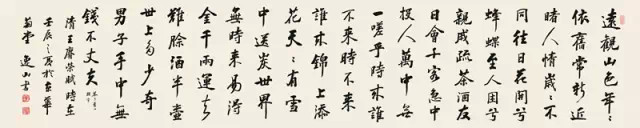 遠觀山色年〻
依舊常新近
睹人情歲〻不
同往日花间兮
蜂蝶至人困兮
親戚疏茶酒友
日會千客急中
投人萬中無
一嗟乎時來誰
不來時不来
誰來錦上添
花天〻有雪
中送炭世界
無時来易得
金千兩運去
難賒酒半壺
世上多少奇
男子手中無
錢不丈夫
清王廢榮賦时在
壬辰之夏於京華
菊堂逸山书